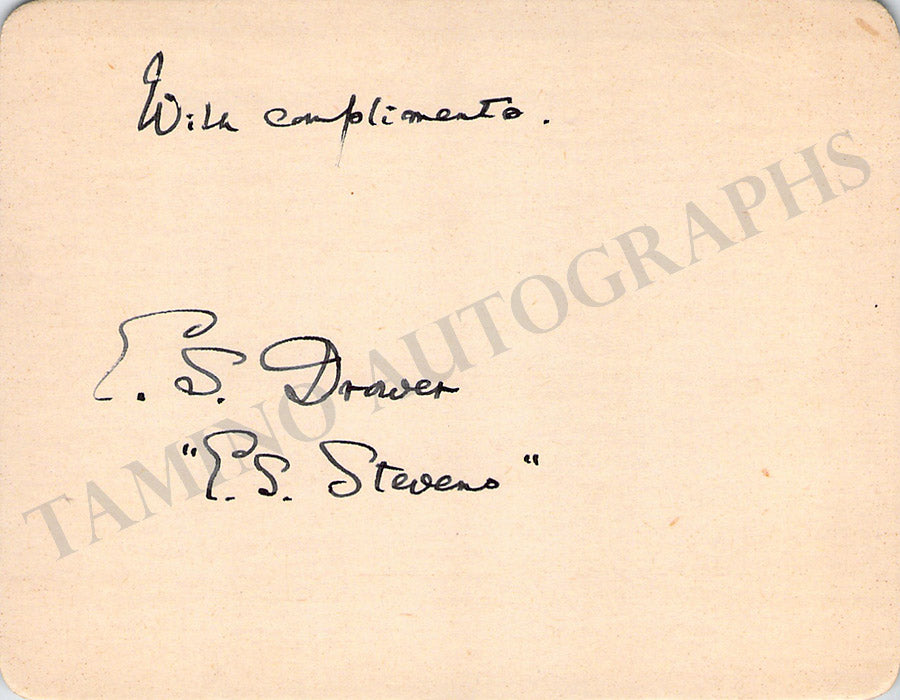 With compliments.
E. S. Drower
"E. S. Stevens"
TAMINO AUTOGRAPHS